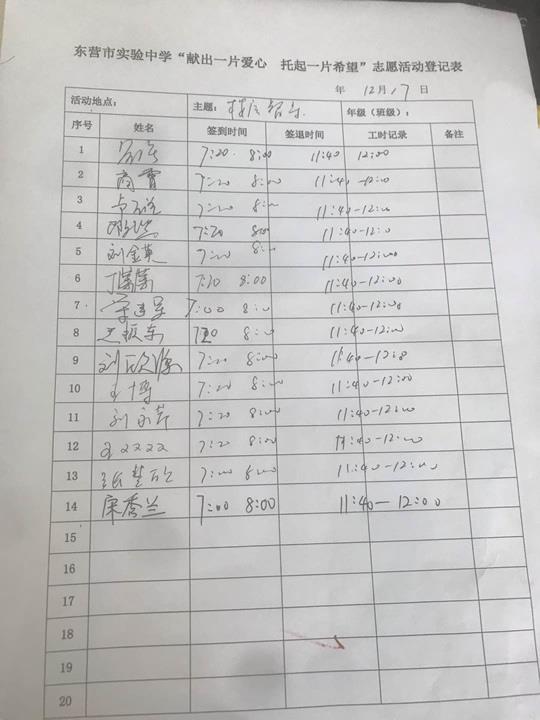 东营市实验中学“献出一片爱心 托起一片希望”志愿活动登记表
年 12月17日
活动地点： 主题： 年级（班级）：
序号 姓名 签到时间 签退时间 工时记录 备注
1 7:20 8:00 11:40 12:00
2 7:20 8:00 11:40-12:00
3 7:20 8:00 11:40-12:00
4 7:20 8:00 11:40-12:00
5 刘金英 7:20 8:00 11:40-12:00
6 7:20 8:00 11:40-12:00
7 7:00 8:00 11:40-12:00
8 8:00 11:40-12:00
9 刘欣源 7:20 8:00 11:40-12:0
10 王博 7:20 8:00 11:40-12:00
11 刘永芹 7:20 8:00 11:40-12:00
12 7:20 8:00 11:40-12:00
13 张楚欣 7:00 8:00 11:40-12:00
14 宋秀兰 7:00 8:00 11:40-12:00
15
16
17
18
19
20